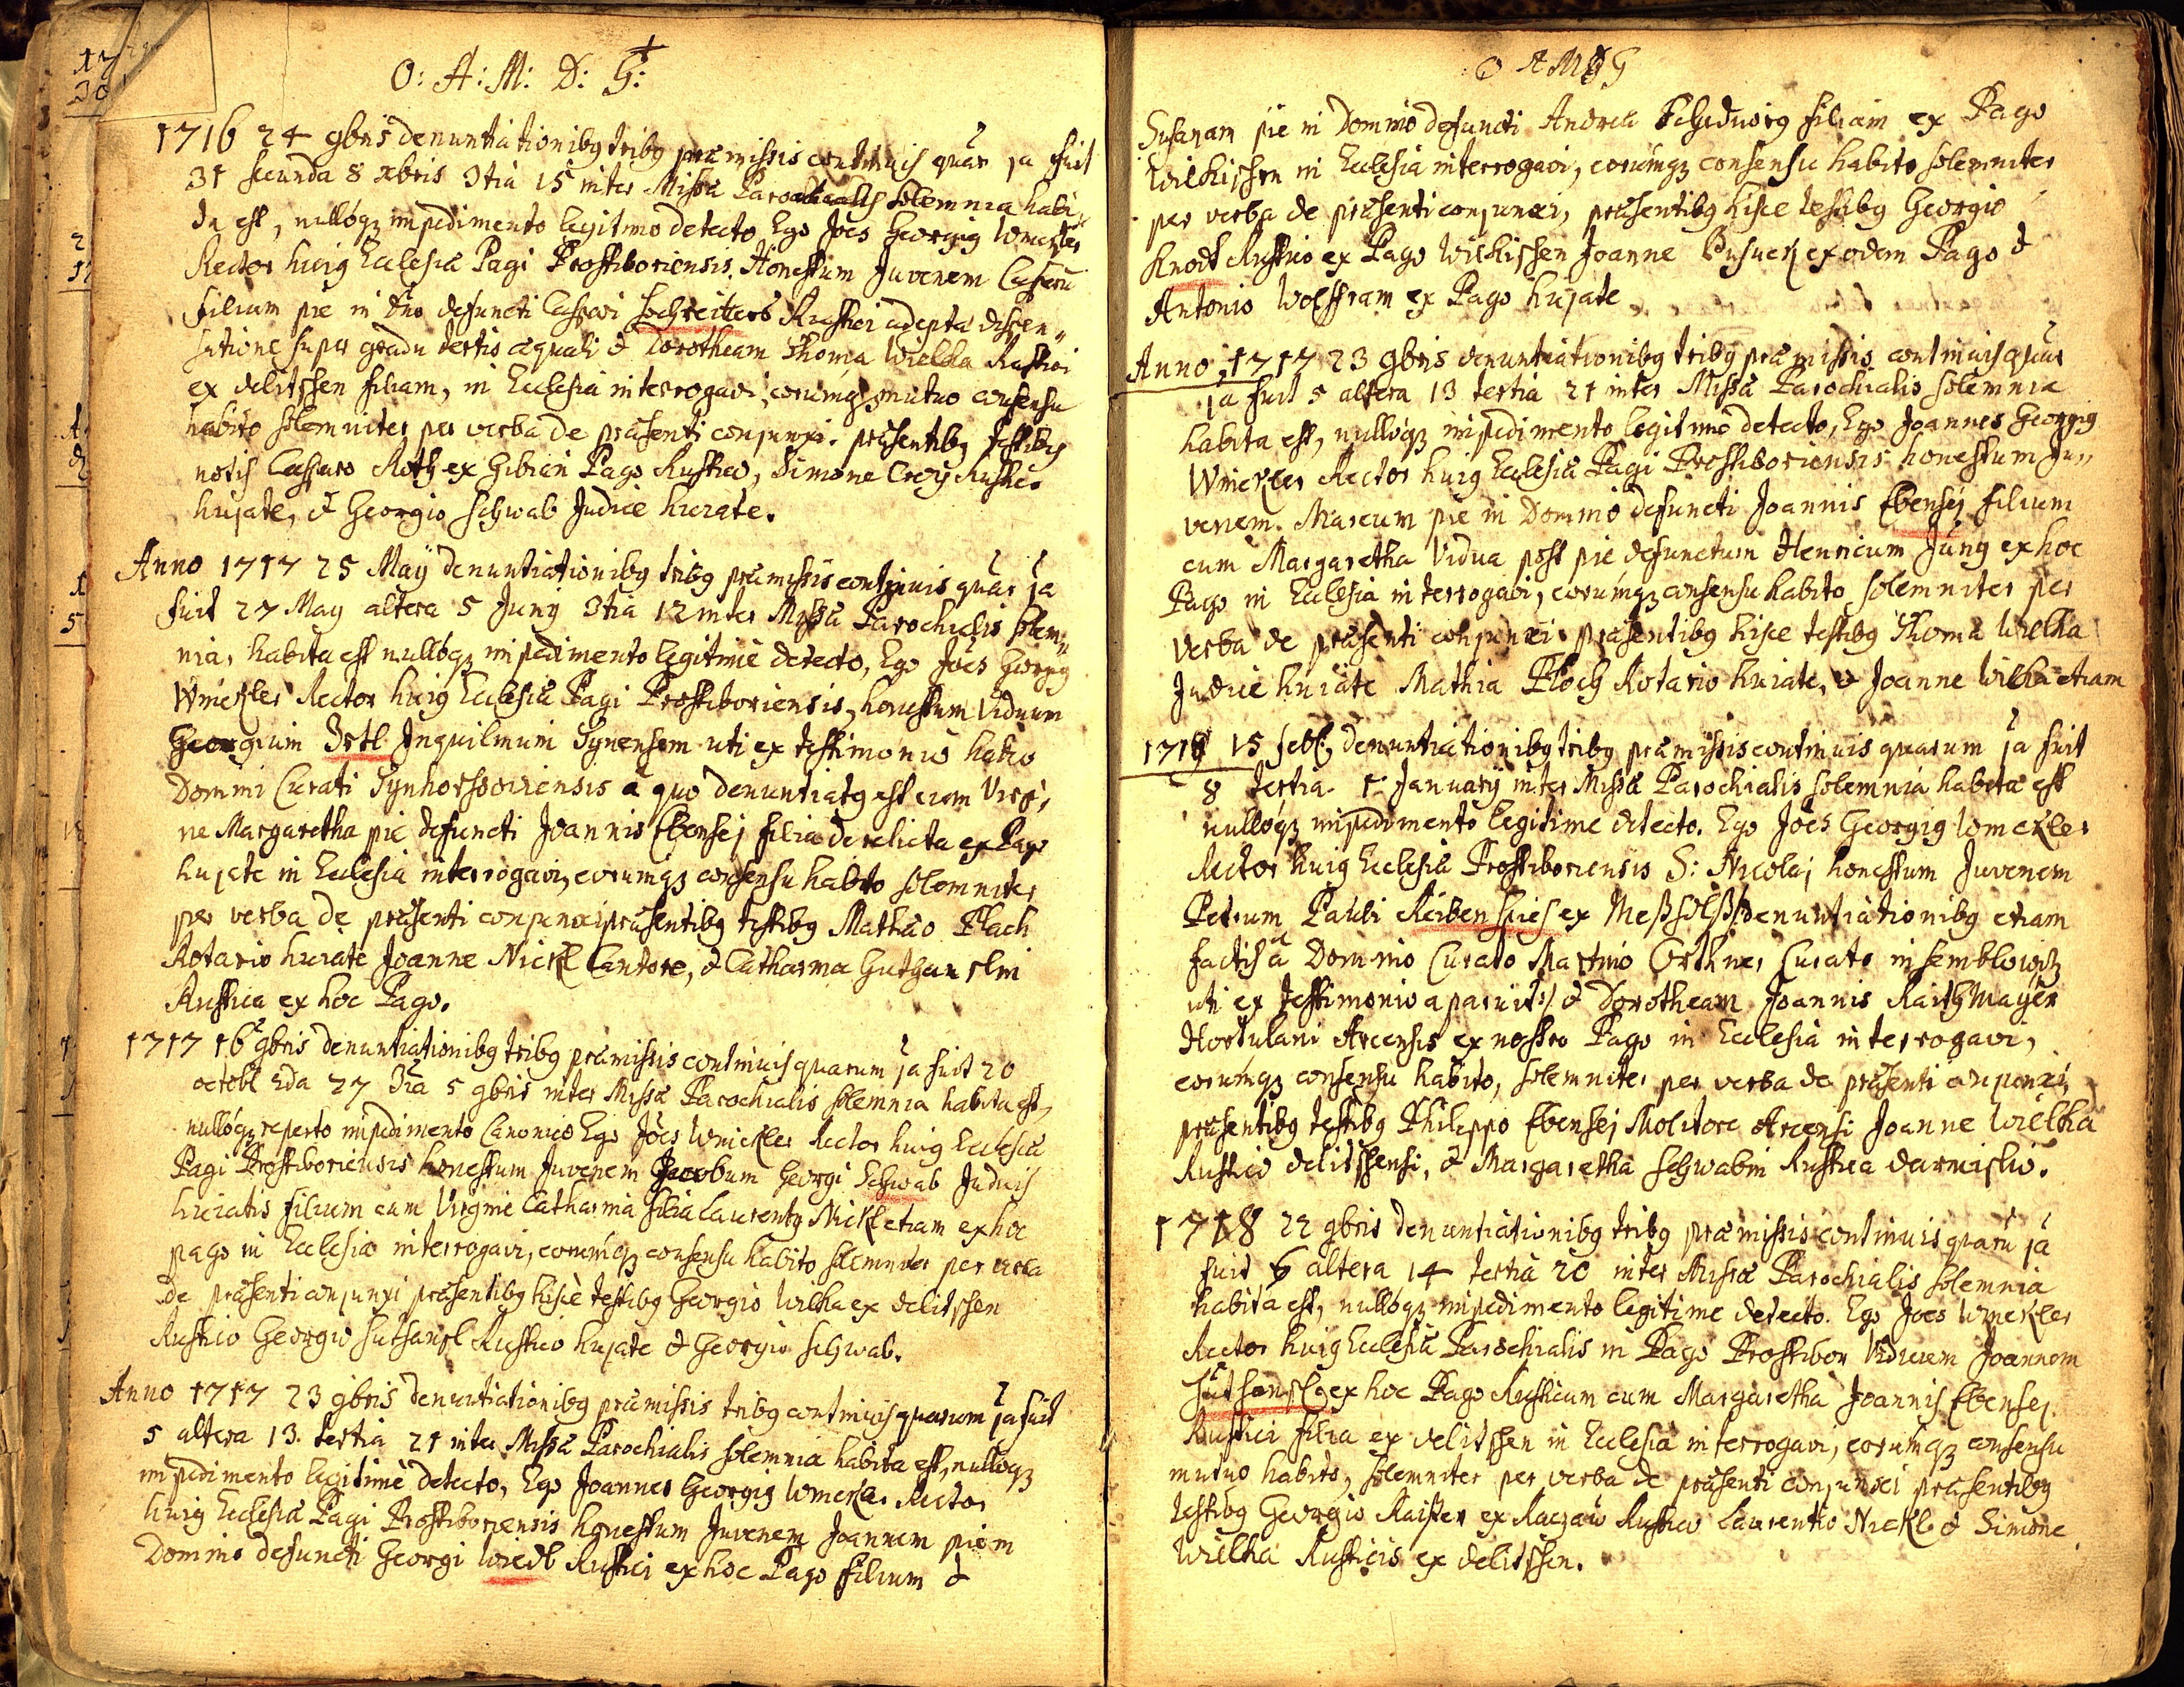 O: A: M: D: G:
1716 24 9bris denuntiationibg tribg praemissis continuis quar 1a fuit
31 secunda 8 xbris 3tia 15 inter Missae Parochialis solemnia habi
ta est, nullóqz impedimento legitimo detecto Ego Joes Georgig Winckler
Rector huig Ecclesiae Pagi Prostiboriensis Honestum Juvenem Casparu
filium pie in Dno defuncti Caspari Hochreitters Rustici adepta dispen„
satione super gradu tertio aequali & Dorotheam Thoma Wielka Rustici
ex delitschen filiam, in Ecclesia interrogavi, eorumqz mutuo consensu
habito solemniter per verba de praesenti conjunxi. praesentibg testibg
notis Casparo Roth ex Gibian Pago Rustico, Simone Croy Rustico
hujate, & Georgio Schwab Judice hurate.
Anno 1717 25 Maÿ denuntiationibg tribg praemissis continuis quar 1a
fuit 27 May altera 5 Junÿ 3tia 12 inter Missae Parochialis solem„
nia, habita est nullóqz impedimento legitimè detecto, Ego Joes Georgig
Winckler Rector huig Ecclesiae Pagi Prostiboriensis, honestum Viduum
Georgium Zettl Inquilinum Synensem uti ex testimonio habeo
Domini Curati Synhorssoviensis à quo denuntiatg est cum Virgi„
ne Margaretha pie defuncti Joannis Ebensej filia derelicta ex Pago
hujate in Ecclesia interrogavi, eorumqz consensu habito solemniter
per verba de praesenti conjunxi praesentibg testibg Mathaeo Plach
Rotario huiate Joanne Nickl Cantore, & Catharina Guthanslin
Rustica ex hoc Pago.
1717 16 9bris denuntiationibg tribg praemissis continuis quarum 1a fuit 20
octobr 2da 27 3tia 5 9bris inter Missae Parochialis solemnia habita est,
nullóqz reperto impedimento Canonico Ego Joes Winckler Rector huig Ecclesiae
Pagi Prostiboriensis honestum Juvenem Jacobum Georgi Schwab Judicis
huiatis filium cum Virgine Catharina filia Laurenty Nickl etiam ex hoc
pago in Ecclesia interrogavi, eorumqz consensu habito solemniter per verba
de praesenti conjunxi praesentibg hisce testibg Georgio Wilka ex delitschen
Rustico Georgio Guthansl Rustico hujate & Georgio Schwab.
Anno 1717 23 9bris denuntiationibg praemissis tribg continuis quarum 1a fuit
5 altera 13. tertia 21 inter Missae Parochialis solemnia habita est, nullóqz
impedimento legitimè detecto, Ego Joannes Georgig Winckler Rector
huig Ecclesiae Pagi Prostiboriensis honestum Juvenem Joannem pie in
Domino defuncti Georgi Wiedl Rustici ex hoc Pago filium &
O A M D G
Susanam pie in Domino defuncti Andreae filiam ex Pago
Wilkischen in Ecclesia interrogavi, eorumqz consensu habito solemniter
per verba de praesenti conjunxi, praesentibg hisce testibg Georgio
Knodt Rustico ex Pago Wilkischen Joanne ex eodem Pago &
Antonio Wolffram ex Pago hujate
Anno 1717 23 9bris denuntiationibg tribg praemissis continuis quar
1a fuit 5 altera 13 tertia 21 inter Missae Parochialis solemnia
habita est, nullóqz impedimento legitimo detecto, Ego Joannes Georgig
Winckler Rector huig Ecclesiae Pagi Prostiboriensis honestum Ju„
venem. Marcum pie in Domino defuncti Joannis Ebensej filium
cum Margaretha Vidua post pie defunctum Henricum Jung ex hoc
Pago in Ecclesia interrogavi, eorumqz consensu habito solemniter per
verba de praesenti conjunxi praesentibg hisce testibg Thoma Wielka
Judice huiate Mathia Ploch Rotario huiate, & Joanne Wilka etiam
1718 15 febr, denuntiationibg tribg praemissis continuis quarum 1a fuit
8 tertia January inter Missae Parochialis solemnia habita est
nullóqz impedimento legitime detecto. Ego Joes Georgig Winckler
Rector huig Ecclesiae Prostiboriensis S: Nicolaj honestum Juvenem
Petrum Pauli ex denuntiationibg etiam
factis à Domino Curato Martino Orthner Curato in Semblowitz
uti ex testimonio aparuit:/ & Dorotheam Joannis Raithmayer
Hortulani Arcensis ex nostro Pago in Ecclesia interrogavi,
eorumqz consensu habito, solemniter per verba de praesenti conjunxi,
praesentibg testibg Philippo Ebensej Molitore Arcensi Joanne Wielka
Rustico delitschensi, & Margaretha Schwabin Rustica darmislio.
1718 22 9bris denuntiationibg tribg praemissis continuis quaru 1a
fuit 6 altera 14 tertia 20 inter Missae Parochialis solemnia
habita est, nullóqz impedimento legitime detecto. Ego Joes Winckler
Rector huig Ecclesiae Parochialis in Pago Prostibor Viduum Joannem
Guthansl, ex hoc Pago Rusticum cum Margaretha Joannis Ebensej
Rustici filia ex delitschen in Ecclesia interrogavi, eorumqz consensu
mutuo habito, solemniter per verba de praesenti conjunxi praesentibg
testibg Georgio Kaiser ex Raczau Rustico Laurentio Nickl & Simone
Wielka Rusticis ex delitschen.